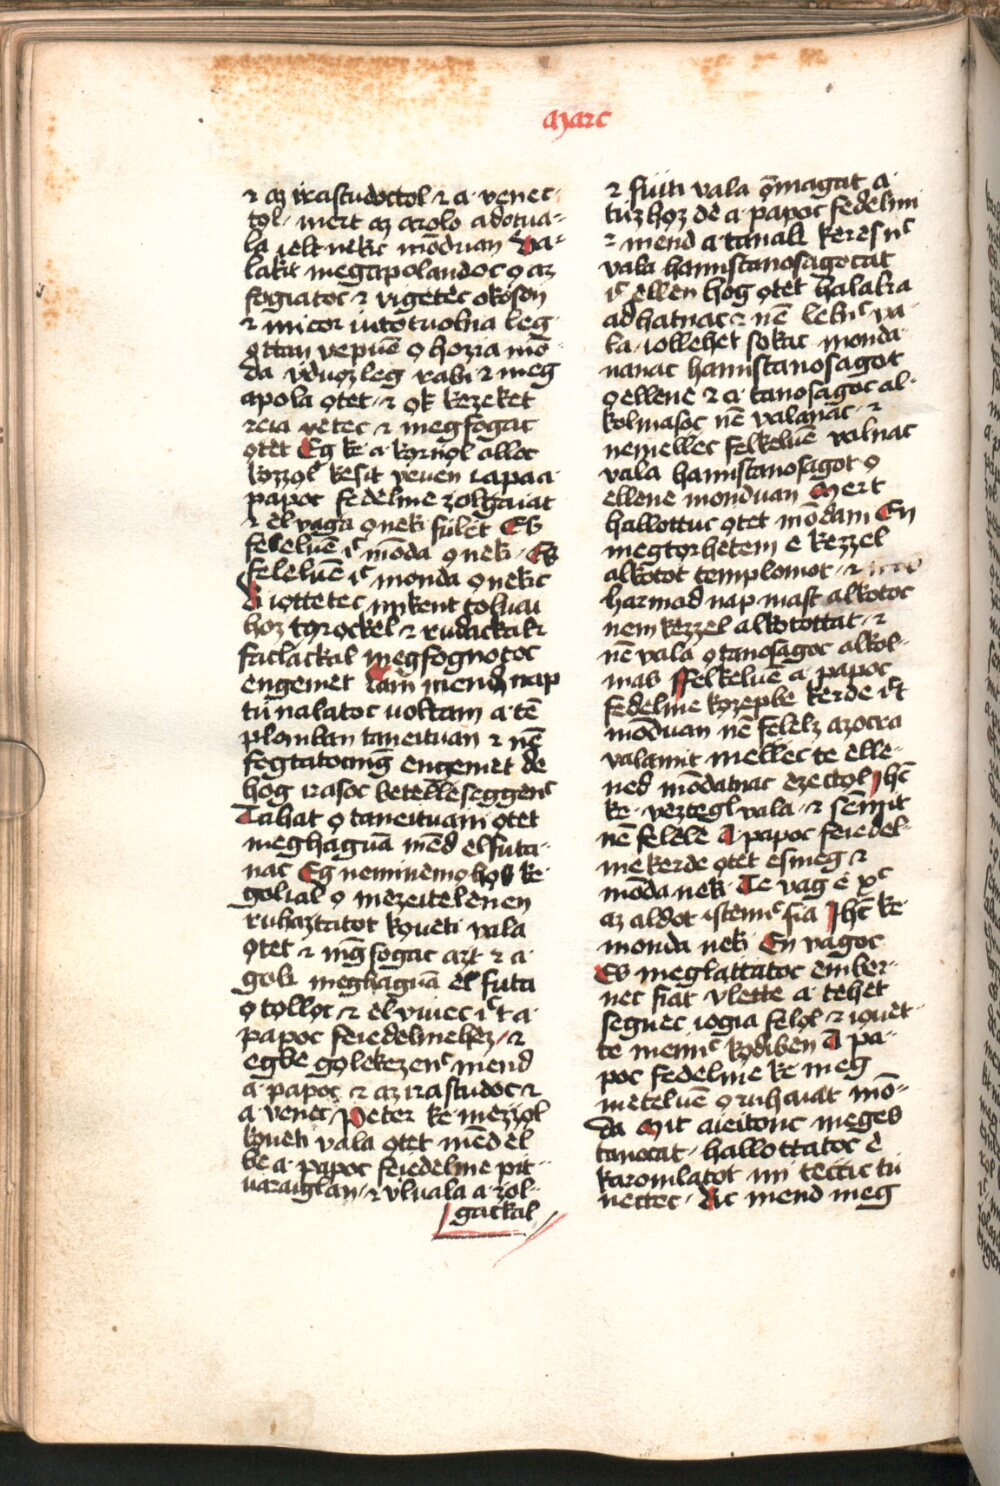 Marc
⁊ aȥ irastudoctol · ⁊ a · venec ·
tol · mert aȥ arolo adotua꞊
la ielt nekic mōduan Va꞊
lakit megapolandoc o aȥ
fogiatoc ⁊ vigetec okoſon
⁊ micor iutotuolna leg ·
ottan vepuē o hoȥia mō ·
da vduoȥ leg rabi ⁊ meg
apola otet · ⁊ ok keȥeket
reia vetec ⁊ megfogac
otet Eg ke · a kornol alloc
koȥȥol kesit veuen i apaa ·
papoc fedelme ȥolgaiat
⁊ el vaga onek fulet Es
feleluē ic mōda onek · Es
feleluē ic monda onekic
Ki iottetec mikent toluai
hoȥ torockel ⁊ rudackal ⁊
faclackal megfognotoc
engemet Iam mend nap
tu nalatoc uoltam a · tē
plomban taneituan ⁊ nē
fogtatocmg engemet de
hog irasoc betelleseggenc
Tahat o taneituani otet
meghaguā mēd elfuta ·
nac Eg neminemo hos ke ·
golial o meȥeitelenen
ruhaȥtatot koueti vala
otet ⁊ mg fogac aȥt ⁊ a ·
golc meghaguā el futa
o tolloc ⁊ el viuec ict a ·
papoc feiedelmeheȥ · ⁊
egbe golekeȥenc mend
a · papoc ⁊ aȥ irastudoc ⁊
a venec Peter ke · meȥȥol
koueti vala otet mēd el
be a · papoc feiedelme pit ·
uaraiglan · ⁊ vl uala a · ȥol ·
gackal
⁊ fuiti vala ōmagat a ·
tuȥhoȥ de a · papoc fedelmi
⁊ mend a tanalt keresic
vala hamistanosagocat
ic ellen hog otet halalra
adhatnac ⁊ nē lelnc va ·
la · iollehet sokac monda ·
nanac hamistanosagot
o ellene ⁊ a · tanosagoc al ·
kolmasoc nē valanac · ⁊
nemellec felkeluē valnac
vala hamistanosagot o
ellene monduan Mert
hallottuc otet mōdani En
megtorhetem e keȥȥel
alkotot templomot · ⁊
harmad nap mast alkotoc
nem keȥȥel alkotottat · ⁊
nē vala o tanosagoc alkol ·
mas Felkeluē a · papoc
fedelme koȥepbe kerde ict
mōduan nē felelȥ aȥocra
valamit mellec te elle ·
ned mōdatnac eȥectol Ihc
ke · veȥtegl vala · ⁊ semmit
nē felele A papoc feiedel ·
me kerde otet esmeg ⁊
mōda nek · Te vag e xc
aȥ aldot istennc fia Ihc ke ·
monda nek En vagoc
Es meglattatoc ember ·
nec fiat vlette a · tehet
segnec iogia felol ⁊ iouet ·
te mennc kodiben A pa ·
poc fedelme ke meg
meteluē o ruhaiat mō ·
da Mit aieitonc meges
tanocat · hallottatoc e
karomlatot mi tectic tu
nectec · Kic mend meg